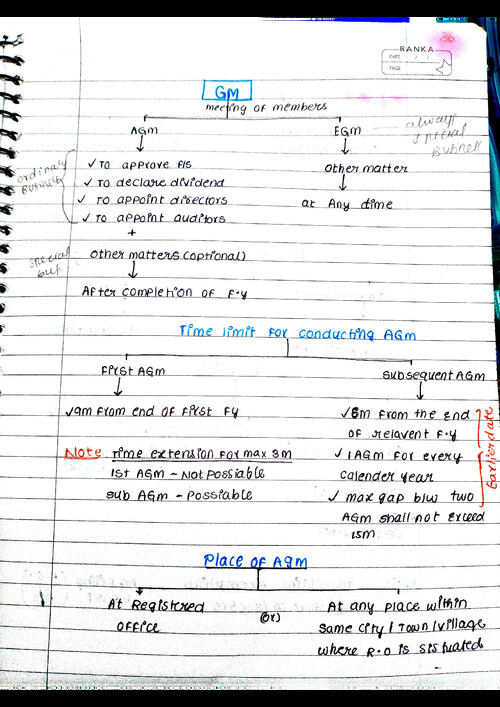 36
RANKA
DATE / /
PAGE
GM
meeting of members
AGM
EGM
always special Busness
ordinary Busness
✓ To approve F/S
✓ To declare dividend
✓ To appoint directors
✓ To appoint auditors
+
other matters (optional)
special
After completion of F.y
other matter
at Any time
Time limit for conducting AGM
First AGM
subsequent AGM
✓9m from end of first Fy
✓6m from the end
of relavent F.y
✓ 1AGM for every
calender year
✓ max gap b/w two
AGM shall not exceed
15m
Earlier date
Note Time extension for max 3m
1st AGM - Not Possiable
sub AGM - Possiable
Place of AGM
At Registered
office
(or)
At any place within
same city / Town / village
where R.O is sistuated